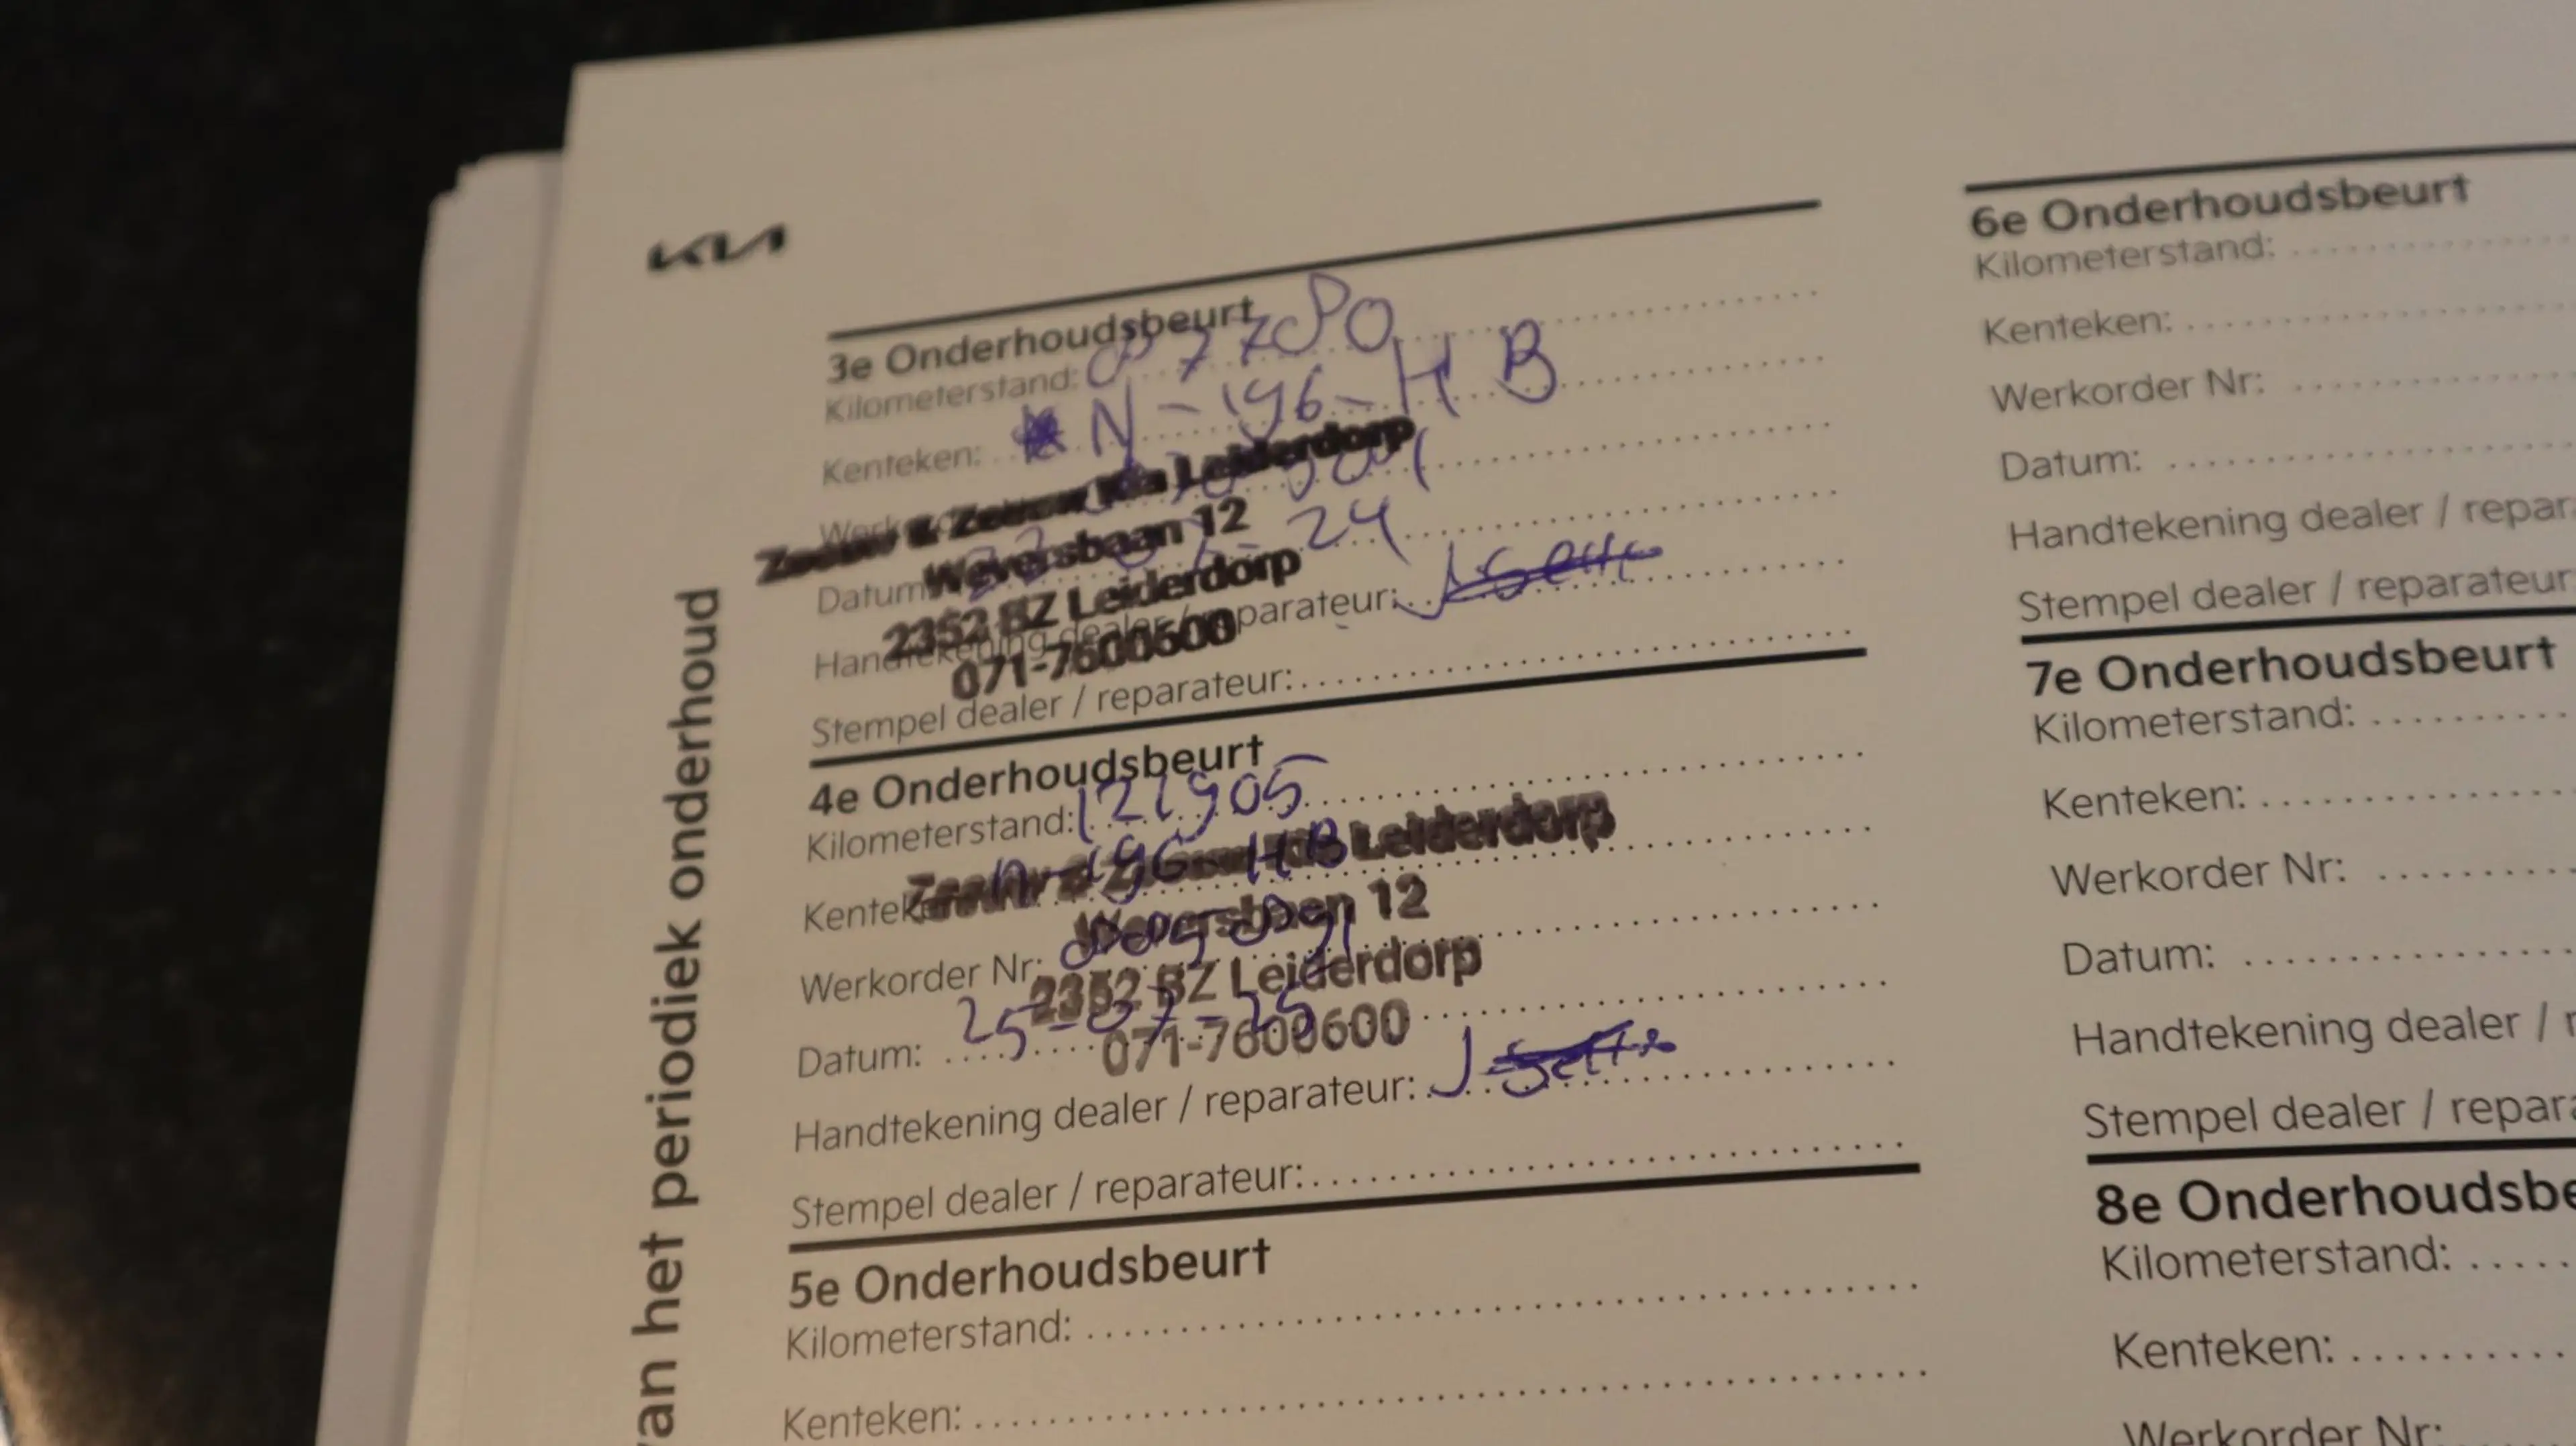 KIA
van het periodiek onderhoud
3e Onderhoudsbeurt
Kilometerstand:
Kenteken: N-196-HB
Zeeuw & Zeeuw Kia Leiderdorp
Weversbaan 12
Datum 24
2352 BZ Leiderdorp
Handtekening dealer / reparateur:
071-7600600
Stempel dealer / reparateur:
4e Onderhoudsbeurt
Kilometerstand: 121905
Kenteken N-196-HB
Zeeuw & Zeeuw Kia Leiderdorp
Weversbaan 12
Werkorder Nr:
2352 BZ Leiderdorp
Datum: 25-07-25
071-7600600
Handtekening dealer / reparateur:
Stempel dealer / reparateur:
5e Onderhoudsbeurt
Kilometerstand:
Kenteken:
6e Onderhoudsbeurt
Kilometerstand:
Kenteken:
Werkorder Nr:
Datum:
Handtekening dealer / repar
Stempel dealer / reparateur
7e Onderhoudsbeurt
Kilometerstand:
Kenteken:
Werkorder Nr:
Datum:
Handtekening dealer / r
Stempel dealer / repara
8e Onderhoudsbe
Kilometerstand:
Kenteken:
Werkorder Nr: